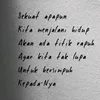 Sekuat apapun
Kita menjalani hidup
Akan ada titik rapuh
Agar kita tak lupa
Untuk bersimpuh
Kepada-Nya